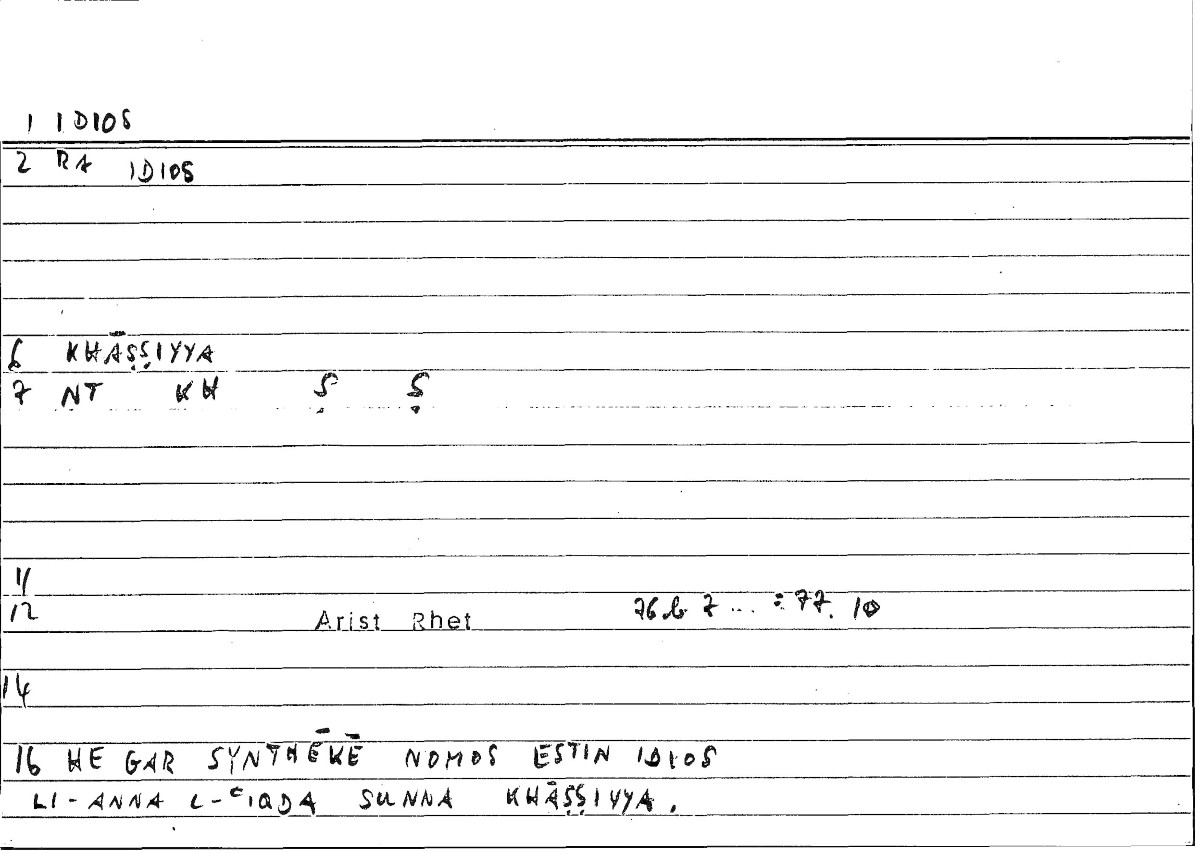 1 IDIOS
2 RA IDIOS
6 KHĀṢṢIYYA
7 NT KH Ṣ Ṣ
11
12 Arist Rhet 76b 7 ... = 77. 10
14
16 HE GAR SYNTHĒKĒ NOMOS ESTIN IDIOS
LI-ANNA L-ʿIQDA SUNNA KHĀṢṢIYYA.